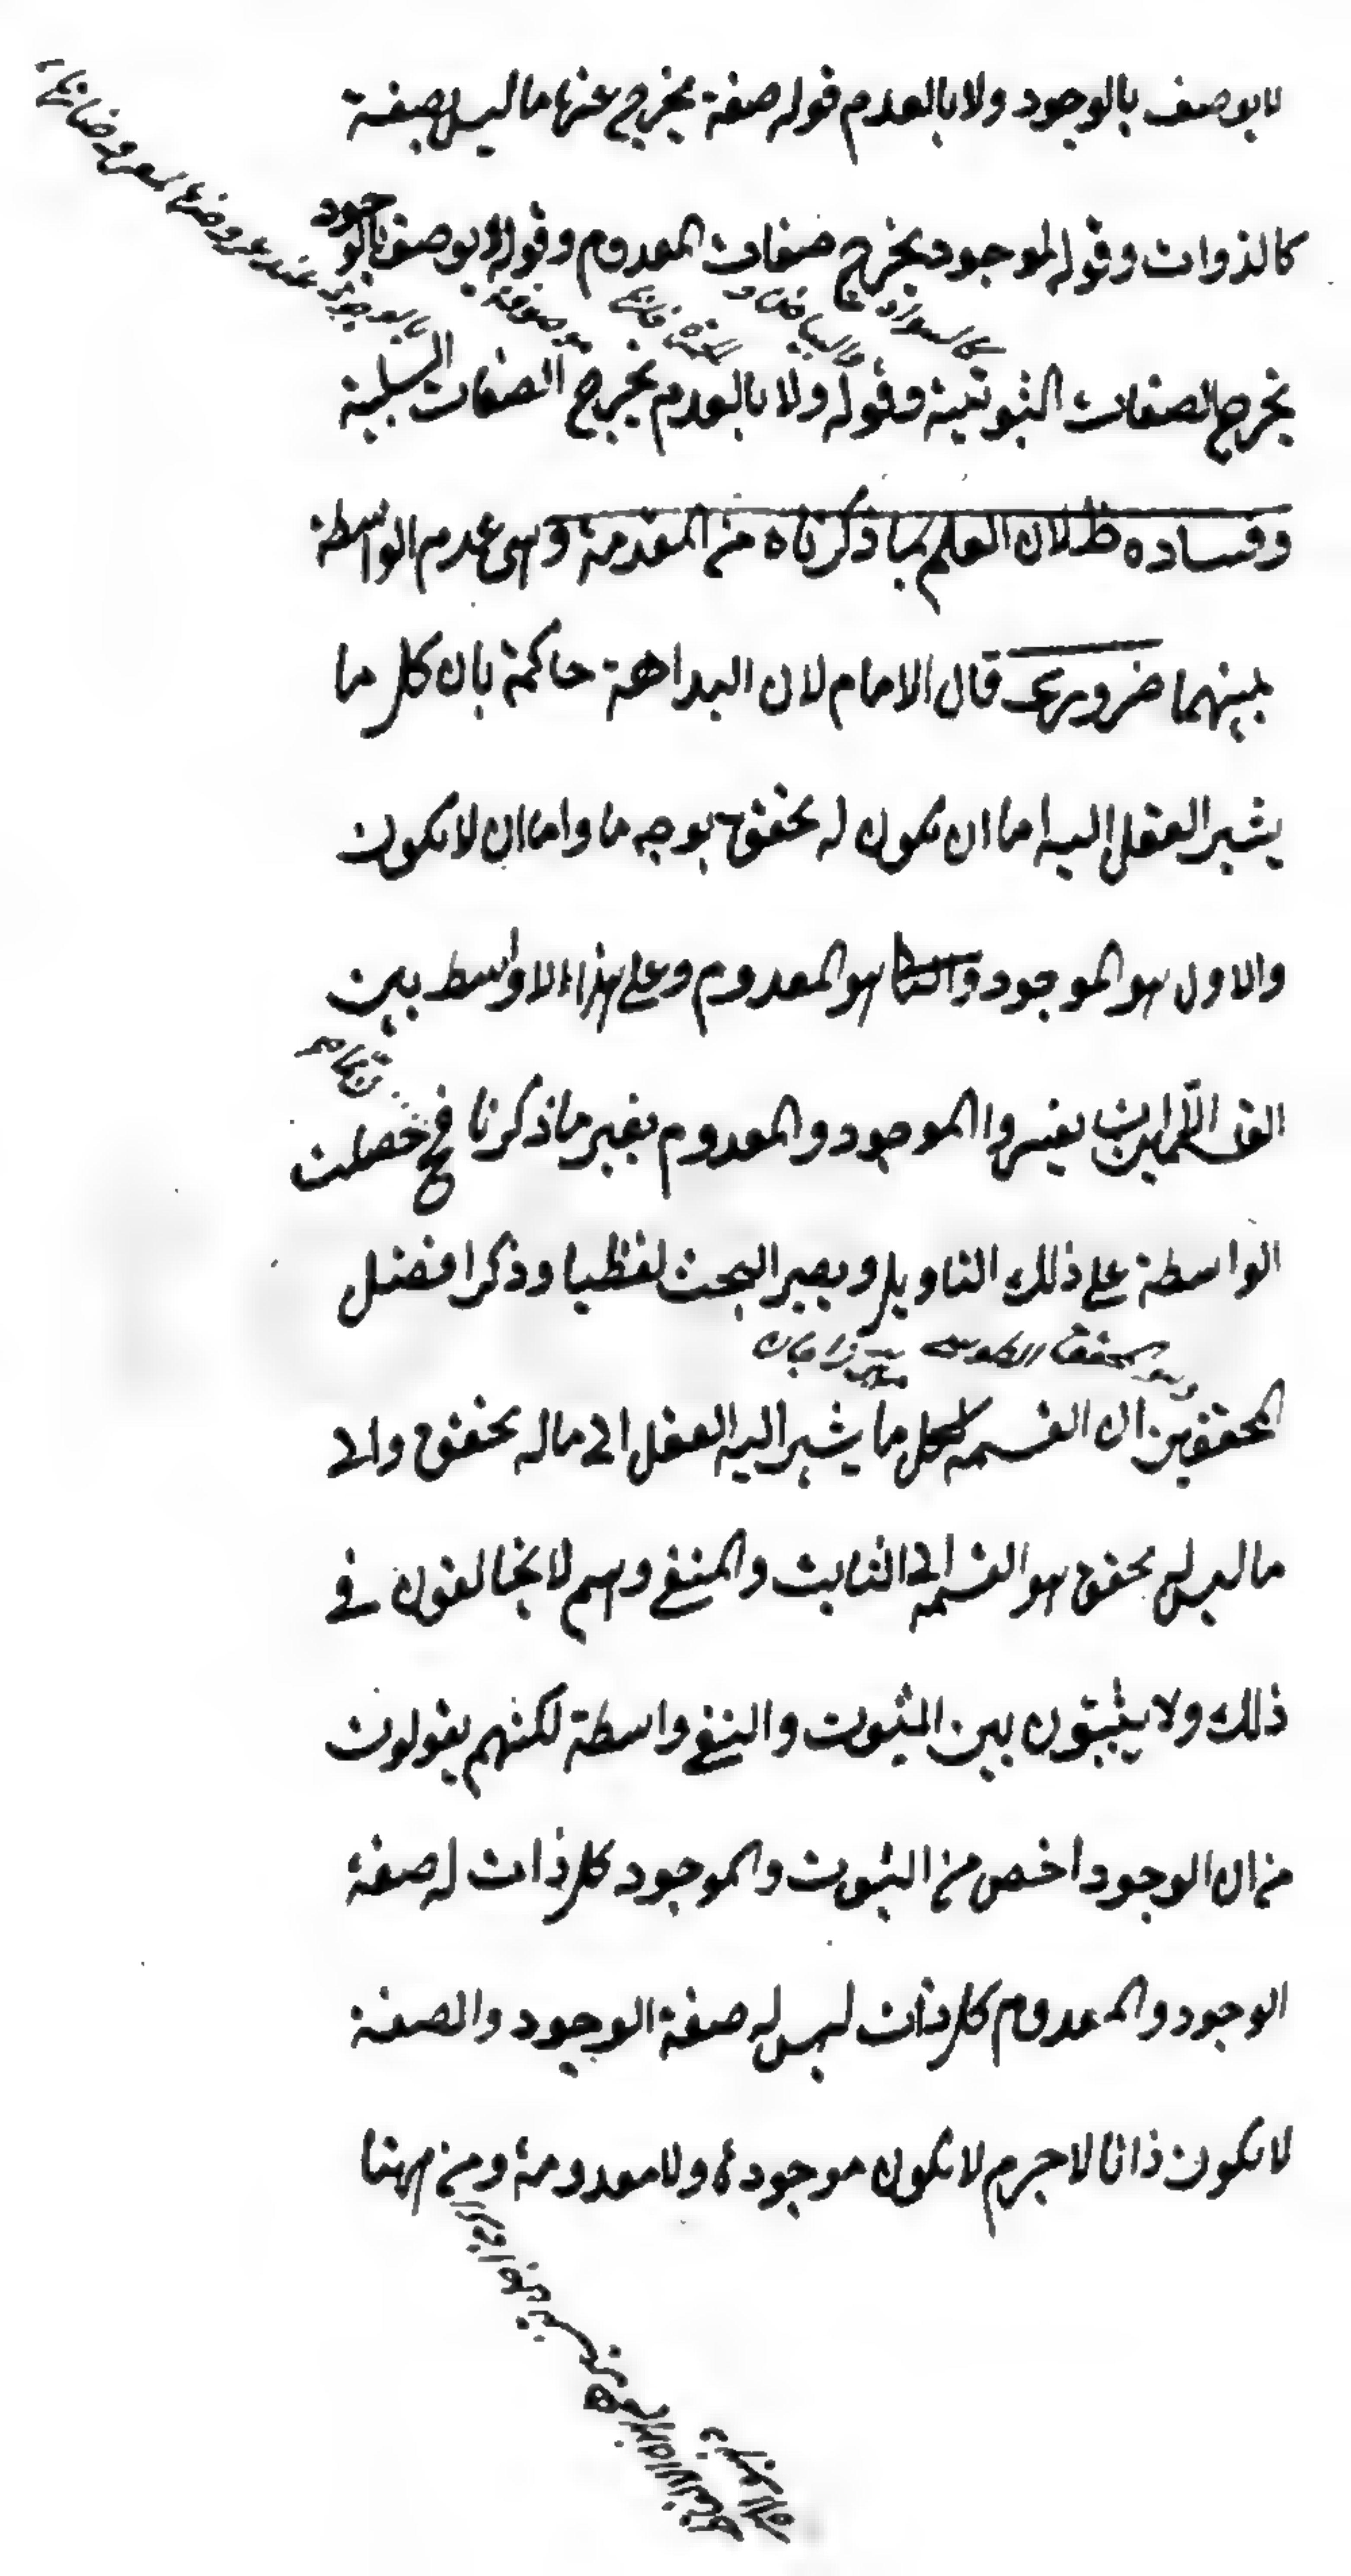 لا يوصف بالوجود ولا بالعدم قوله صفة يخرج عنها ما ليس بصفة
كالذوات وقوله لموجود يخرج صفات المعدوم وقوله لا يوصف بالوجود
كالسواد والبياض والحمرة فانها موصوفة بالوجود عند عروضها لمعروضاتها
يخرج الصفات الثبوتية وقوله ولا بالعدم يخرج الصفات السلبية
وفساده ظ لان العلم بما ذكرناه من المقدمة وهى عدم الواسطة
بينهما ضرورى قال الامام لان البداهة حاكمة بان كل ما
يشير العقل اليه اما ان يكون له تحقق بوجه ما واما ان لا يكون
والاول هو الموجود والثانى هو المعدوم وعلى هذا لا واسط بين
القسمين الا ان يفسروا الموجود والمعدوم بغير ما ذكرنا فح حصلت
الواسطة على ذلك التاويل ويصير البحث لفظيا وذكر افضل
وهو المحقق الطوسى
المحققين ان القسمة لكل ما يشير اليه العقل الى ماله تحقق والى
ما ليس له تحقق هو القسمة الى الثابت والمنفى وهم لا يخالفون فى
ذلك ولا يثبتون بين الثبوت والنفى واسطة لكنهم يقولون
من ان الوجود اخص من الثبوت والموجود كل ذات له صفة
الوجود والمعدوم كل ذات ليس له صفة الوجود والصفة
لا يكون ذاتا لا جرم لا يكون موجودة ولا معدومة ومن ههنا